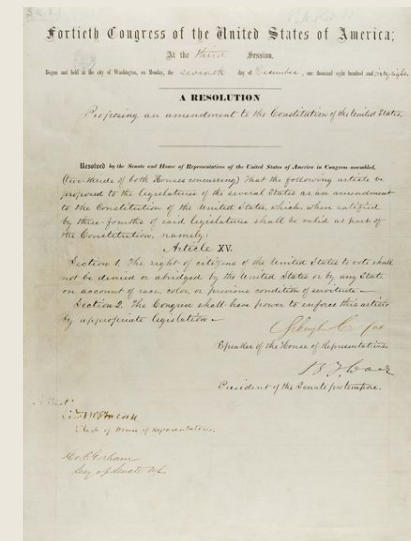 Fortieth Congress of the United States of America;
At the third Session,
Begun and held at the city of Washington, on Monday, the seventh day of December, one thousand eight hundred and sixty-eight
A RESOLUTION
Proposing an amendment to the Constitution of the United States.
Resolved by the Senate and House of Representatives of the United States of America in Congress assembled,
(two-thirds of both Houses concurring) That the following article be
proposed to the legislatures of the several States as an amendment
to the Constitution of the United States, which, when ratified
by three-fourths of said legislatures shall be valid as part of
the Constitution, namely:
Article XV.
Section 1. The right of citizens of the United States to vote shall
not be denied or abridged by the United States or by any State
on account of race, color, or previous condition of servitude.—
Section 2. The Congress shall have power to enforce this article
by appropriate legislation—
Speaker of the House of Representatives.
B F Wade
President of the Senate pro tempore.
Attest:
Clerk of House of Representatives.
Geo. C. Gorham
Secy of Senate U.S.